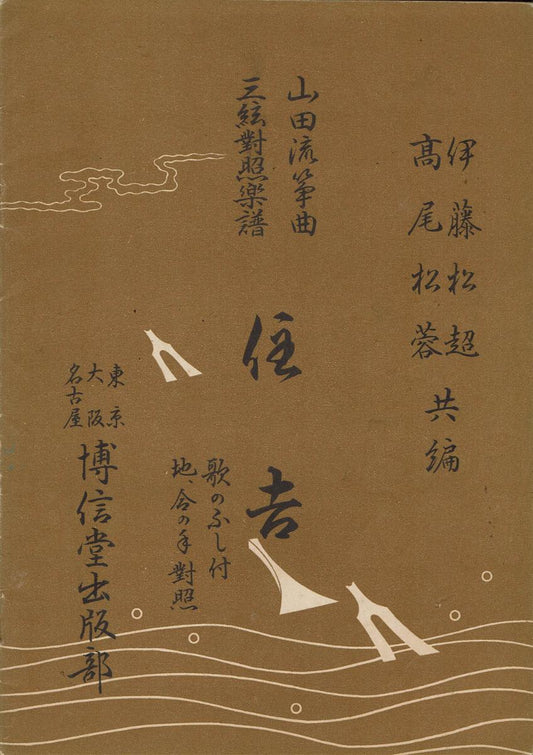 伊藤松超
髙尾松蓉
共編
山田流箏曲
三絃對照樂譜
住吉
歌のふし付
地、合の手對照
東京
大阪
名古屋
博信堂出版部